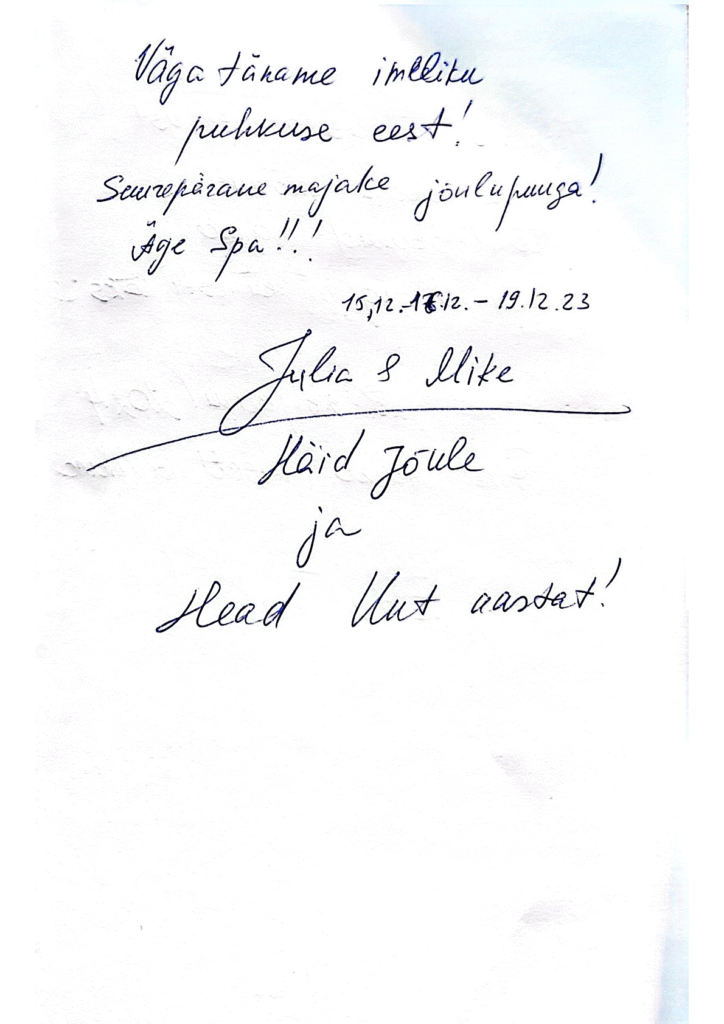 Väga täname imeliku
puhkuse eest!
Suurepärane majake jõulupuuga!
Äge Spa!!!
15,12.-17.12.-19.12.23
Julia & Mike
Häid Jõule
ja
Head Uut aastat!